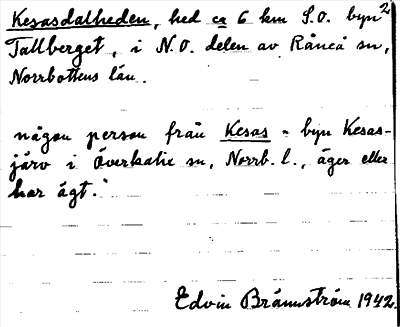 Kesasdalheden, hed ca 6 km S.O. byn 2
Tallberget, i N.O. delen av Råneå sn,
Norrbottens län.
någon person från Kesas = byn Kesas-
järv i Överkalix sn, Norrb. l., äger eller
har ägt.
Edvin Brännström 1942.